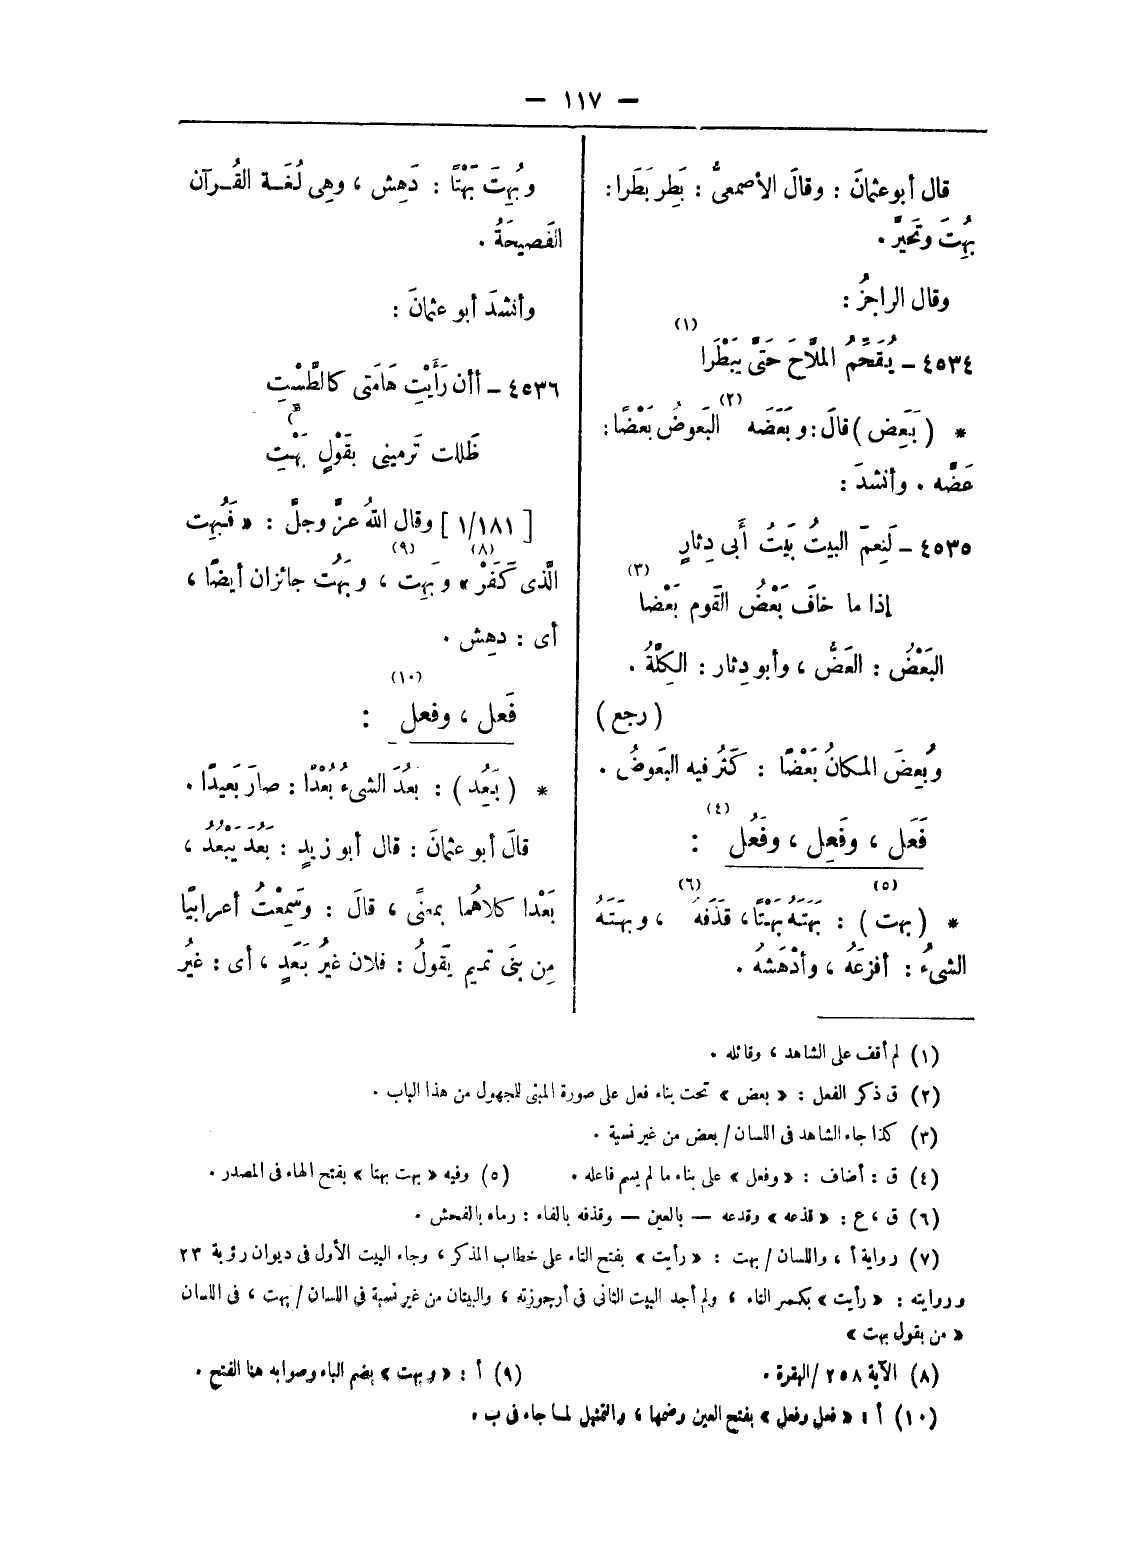 — ١١٧ —
قال أبو عثمانَ : وقالَ الأصمعىُّ : بَطِر بَطَرا :
بُهِتَ وتَحَيرَّ .
وقال الراجزُ :
٤٥٣٤ ـ يُقَحِّمُ المَلَّاحَ حَتَّى يَبْطَرا (١)
* ( بَعَض ) قالَ : وبَعَضَه (٢) البَعوضُ بَعْضًا :
عَضَّه . وأنشدَ :
٤٥٣٥ ـ لَنِعمَ البيتُ بَيتُ أَبى دِثارٍ
إذا ما خافَ بَعْضُ القَوم بَعْضا (٣)
البَعْضُ : العَضُّ ، وأبو دِثار : الكِلَّةُ .
( رجع )
وبُعِضَ المكانُ بَعْضًا : كَثُر فيه البَعوضُ .
فَعَل ، وفَعِل ، وفَعُل (٤) :
* ( بهت ) : بَهَتَهُ بَهْتًا (٥) ، قَذَفَهُ (٦) ، وبهَتَهُ
الشىءُ : أفزعَهُ ، وأدْهَشهُ .
وبُهِتَ بَهْتًا : دَهِش ، وهِى لُغَـة القُـرآن
الفَصيحَةُ .
وأنشدَ أبو عثمانَ :
٤٥٣٦ ـ أأن رَأَيْتِ هَامَتى كالطَّسْتِ
ظَللت تَرمينى بقَوْلٍ بَهْتِ
[ ١٨١/١ ] وقال اللهُ عزَّ وجلَّ : « فَبُهِت
الَّذى كَفَرَ » (٨) وبَهِت (٩) ، وبَهُت جائزان أيضًا ،
أى : دهِش .
فَعل ، وفعل (١٠) :
* ( بَعُد ) : بعُدَ الشىءُ بُعْدًا : صارَ بَعيدًا .
قالَ أبو عثمانَ : قال أبو زيدٍ : بَعُدَ يَبْعُدُ ،
بَعْدا كلاهُما بمعنًى ، قالَ : وسَمِعْتُ أعرابيًّا
مِن بنَى تميم يَقولُ : فلان غيرُ بَعَدٍ ، أى : غيرُ
(١) لم أقف على الشاهد ، وقائله .
(٢) ق ذكر الفعل : « بعض » تحت بناء فعل على صورة المبنى للمجهول من هذا الباب .
(٣) كذا جاء الشاهد فى اللسان / بعض من غير نسبة .
(٤) ق : أضاف : « وفعل » على بناء ما لم يسم فاعله . (٥) وفيه « بهت بهتا » بفتح الهاء فى المصدر .
(٦) ق ، ع : « قذعه » وقدعه — بالعين — وقذفه بالفاء : رماه بالفحش .
(٧) رواية أ ، واللسان / بهت : « رأيت » بفتح التاء على خطاب المذكر ، وجاء البيت الأول فى ديوان رؤبة ٢٣
وروايته : « رأيت » بكسر التاء ، ولم أجد البيت الثانى فى أرجوزته ، والبيتان من غير نسبة فى اللسان / بهت ، فى اللسان
« من بقول بهت »
(٨) الآية ٢٥٨ /البقرة . (٩) أ : « وبهت » بضم الباء وصوابه هنا الفتح .
(١٠) أ : « فعل وفعل » بفتح العين وضمها ، والتمثيل لما جاء فى ب .